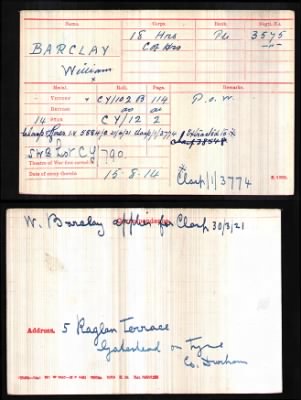 Name. Corps. Rank. Regtl. No.
BARCLAY 18 Hrs Pte 3575
William C of Hrs -"-
Medal. Roll. Page. Remarks.
VICTORY CY/102 B 114 P.O.W.
BRITISH do do
14 STAR CY/12 2
5884/ Clasp/1/3774
S.W.B. List CY/790.
Theatre of War first served in
Date of entry therein 15-8-14 Clasp/1/3774
K. 1380.
W. Barclay applies for Clasp 30/3/21
Address. 5 Raglan Terrace
Gateshead on Tyne
Co. Durham